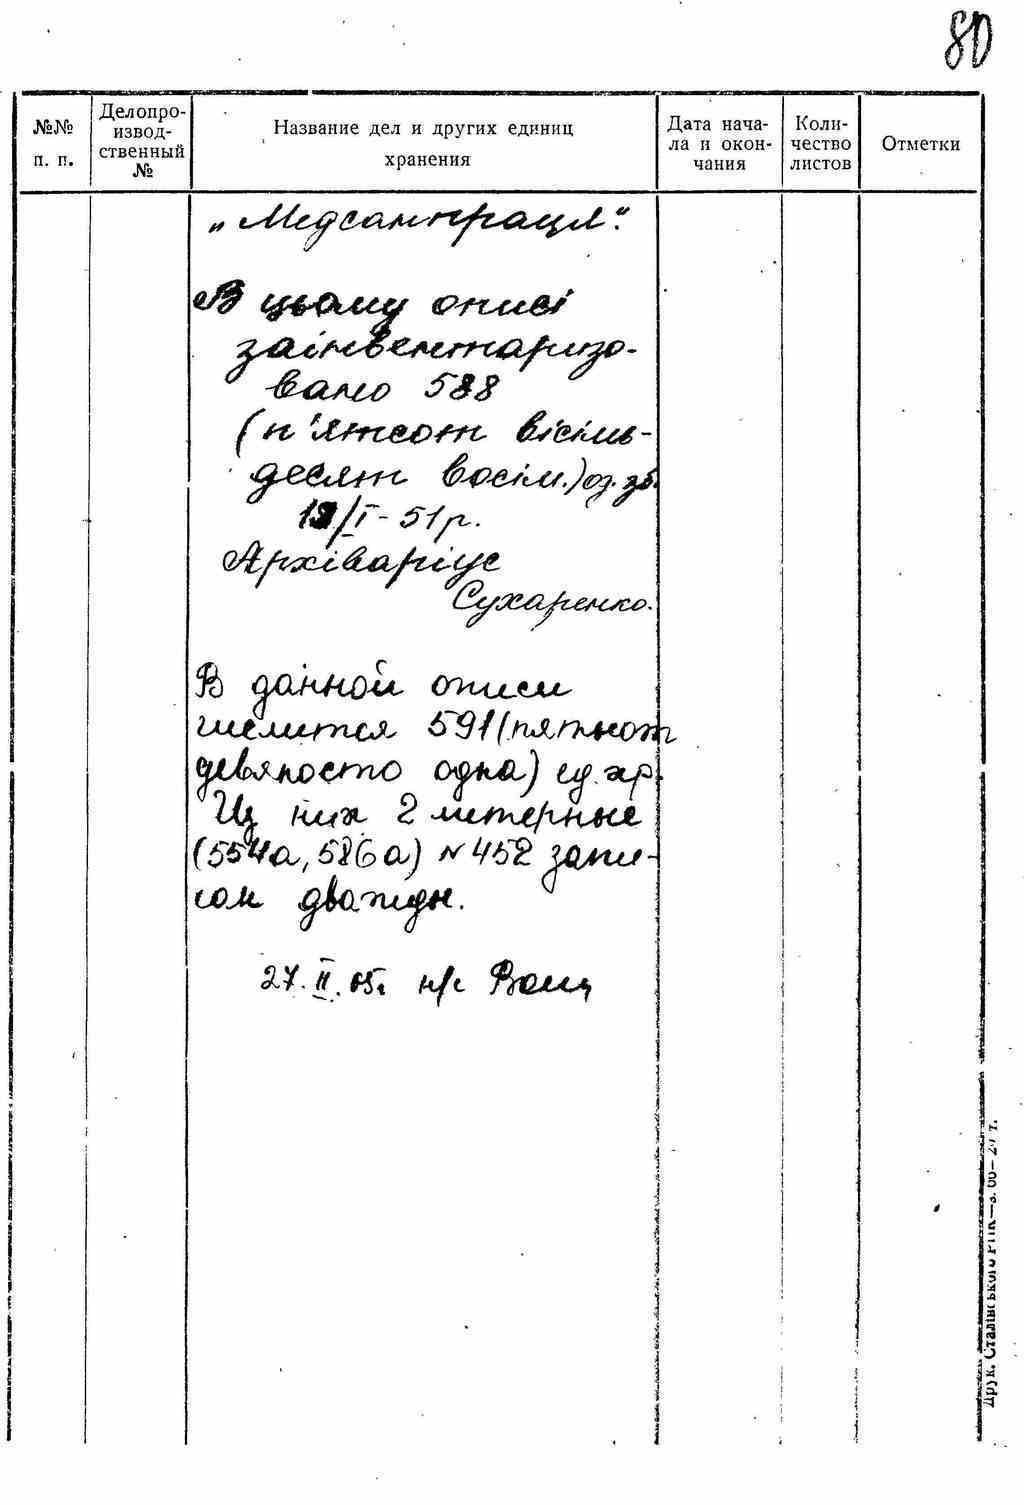 80
№№ п. п.
Делопро-
извод-
ственный
№
Название дел и других единиц
хранения
Дата нача-
ла и окон-
чания
Коли-
чество
листов
Отметки
„Медсанпраця“.
В цьому описі
заінвентаризо-
вано 588
(п'ятсот вісімь-
десят восім.) од. зб.
/I - 51 р.
Архіваріус
Сухаренко.
В данной описи
числится 591 (пятьсот
девяносто одна) ед. хр.
Из них 2 литерные
(554а, 586а) № 452 запи-
сан дважды.
27. II. 65г н/с
Друк. Сталінського